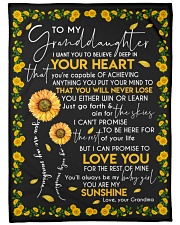 TO MY
Granddaughter
I WANT YOU TO BELIEVE DEEP IN
YOUR HEART
that YOU'RE CAPABLE OF ACHIEVING
ANYTHING YOU PUT YOUR MIND TO
THAT YOU WILL NEVER LOSE
YOU EITHER WIN OR LEARN
Just go forth &
aim for THE SKIES
I CAN'T PROMISE
TO BE HERE FOR
the rest OF YOUR LIFE
BUT I CAN PROMISE TO
LOVE YOU
FOR THE REST OF MINE
You'll always be my baby girl
YOU ARE MY
SUNSHINE
Love, your Grandma
You are my sunshine